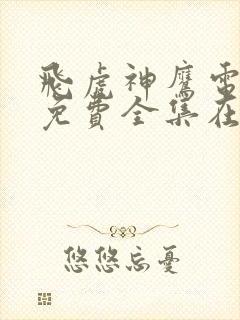 飛虎神鷹電
免費全集在
悠悠忘憂